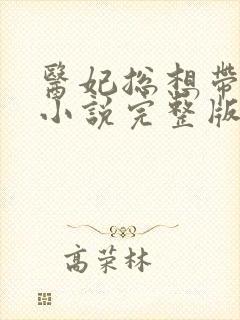 醫妃總想帶
小說完整版
高荣林